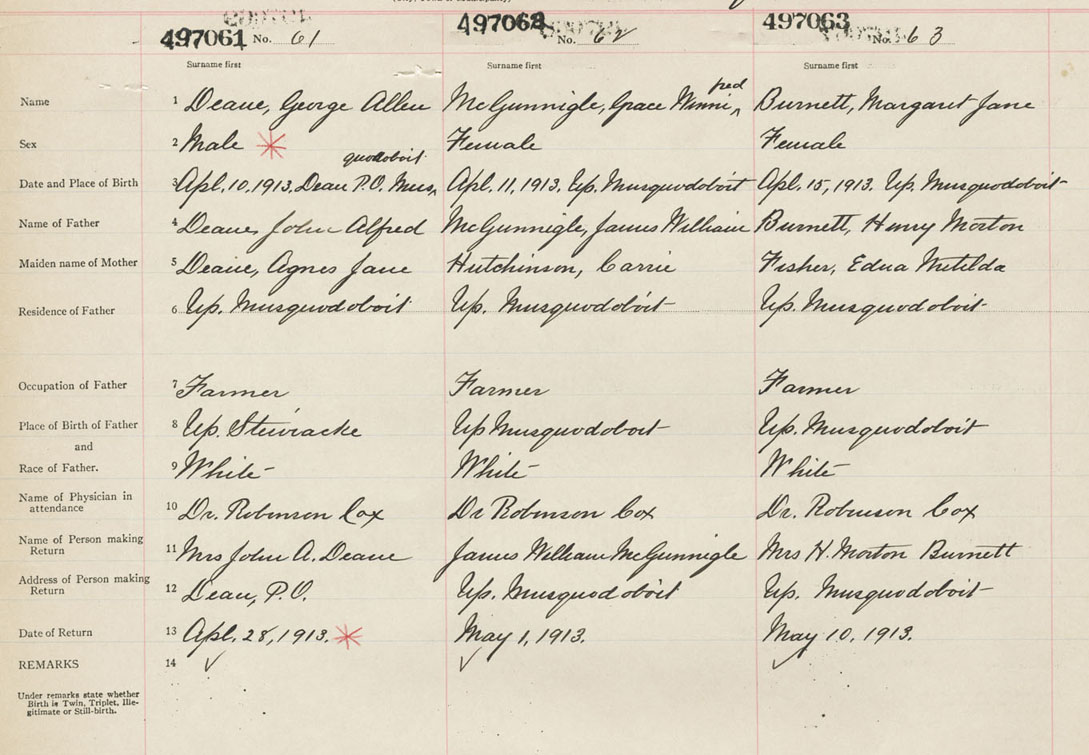 497061 No. 61 497062 No. 62 497063 No. 63
Surname first Surname first Surname first
fred
Name 1 Deane, George Allen McGunnigle, Grace Winni^ Burnett, Margaret Jane
Sex 2 Male * Female Female
quodoboit
Date and Place of Birth 3 Apl. 10, 1913, Dean P.O. Mus^ Apl. 11, 1913, Up. Musquodoboit Apl. 15, 1913. Up. Musquodoboit
Name of Father 4 Deane, John Alfred McGunnigle, James William Burnett, Henry Morton
Maiden name of Mother 5 Deane, Agnes Jane Hutchinson, Carrie Fisher, Edna Metilda
Residence of Father 6 Up. Musquodoboit Up. Musquodoboit Up. Musquodoboit
Occupation of Father 7 Farmer Farmer Farmer
Place of Birth of Father 8 Up. Stewiacke Up Musquodoboit Up. Musquodoboit
and
Race of Father. 9 White White White
Name of Physician in
attendance 10 Dr. Robinson Cox Dr Robinson Cox Dr. Robinson Cox
Name of Person making
Return 11 Mrs John A. Deane James William McGunnigle Mrs H. Morton Burnett
Address of Person making
Return 12 Dean, P.O. Up. Musquodoboit Up. Musquodoboit
Date of Return 13 Apl. 28, 1913. * May 1, 1913. May 10, 1913.
REMARKS 14
Under remarks state whether
Birth is Twin, Triplet, Ille-
gitimate or Still-birth.